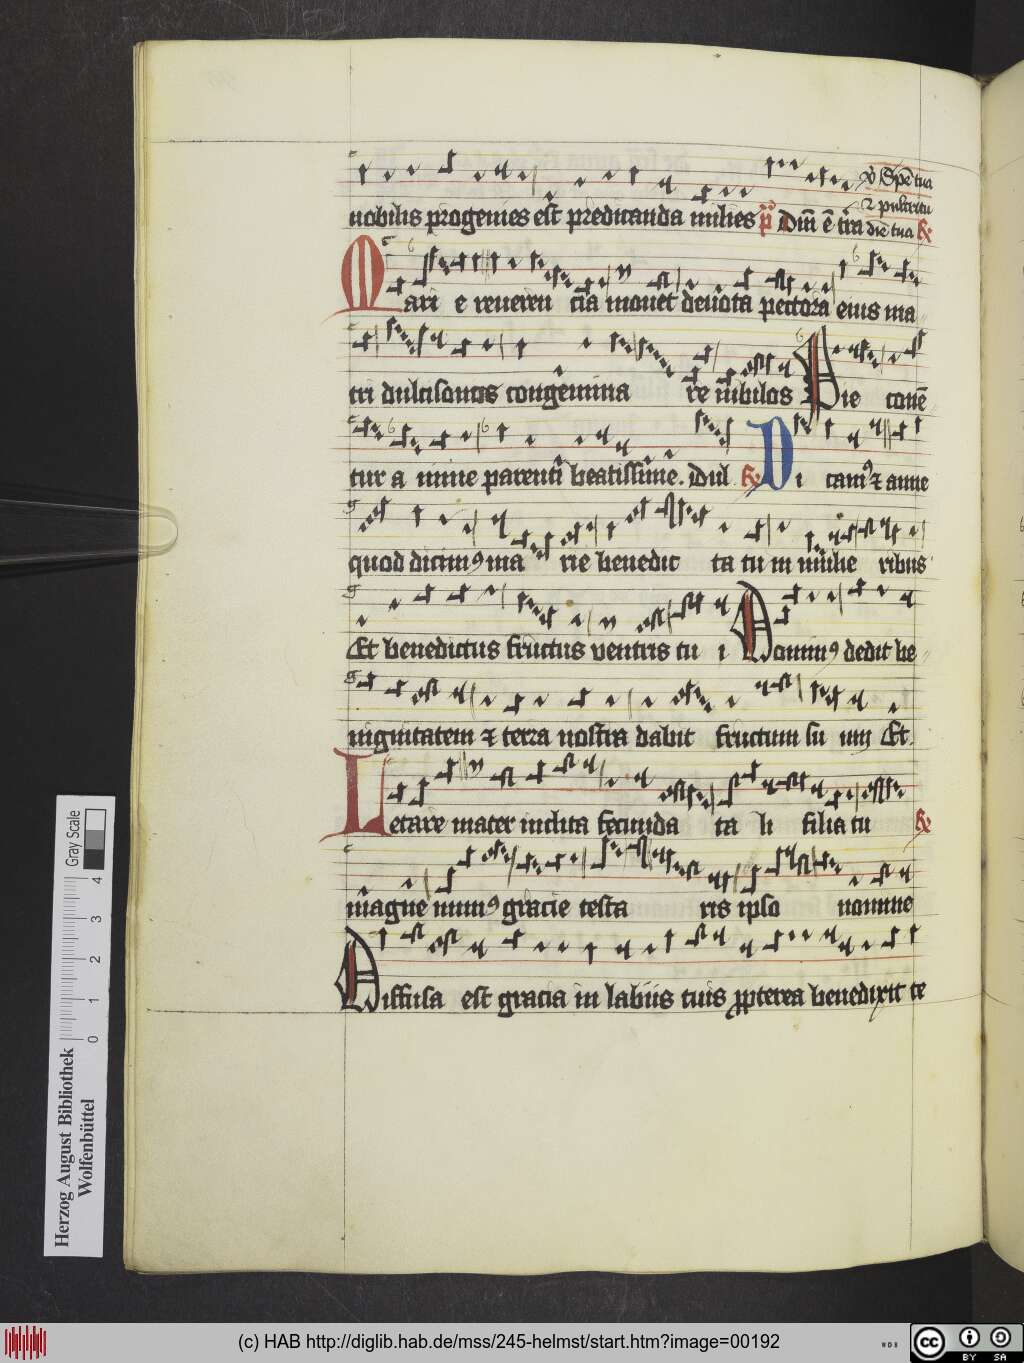 ℣ Spē tua
⁊ pulcritu
nobilis progenies est predicanda milies p̄ Dn̄i ē tr̄a die tua ℟
Mari e reueren cia mouet deuota pectora eius ma
tri dulcisonos congemina re iubilos Pie conē
tur a mme parenti beatissime. Dul ℟ Di camꝰ ⁊ anne
quod dicimꝰ ma rie benedic ta tu in mulie ribus
Et benedictus fructus ventris tu i Dominꝰ dedit be
nignitatem ⁊ terra nostra dabit fructum su um Et.
Letare mater inclita fecunda ta li filia tu ℟
magne munꝰ gracie testa ris ipso nomine
Diffusa est gracia in labiis tuis ꝓpterea benedixit te
Gray Scale
4
3
2
1
0
Herzog August Bibliothek
Wolfenbüttel
(c) HAB http://diglib.hab.de/mss/245-helmst/start.htm?image=00192
WDB
cc BY SA